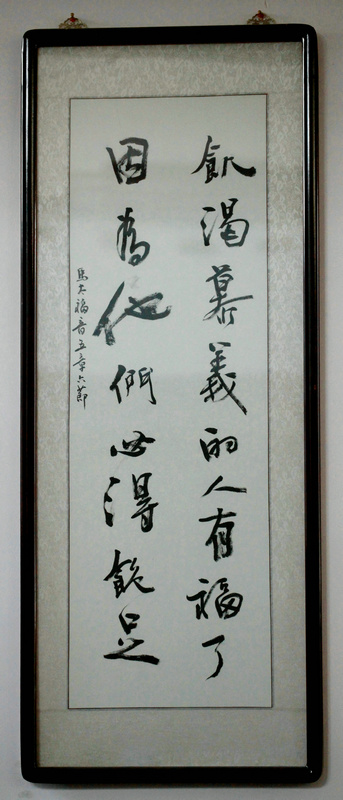 飢渴慕義的人有福了
因為他們必得飽足
馬太福音五章六節